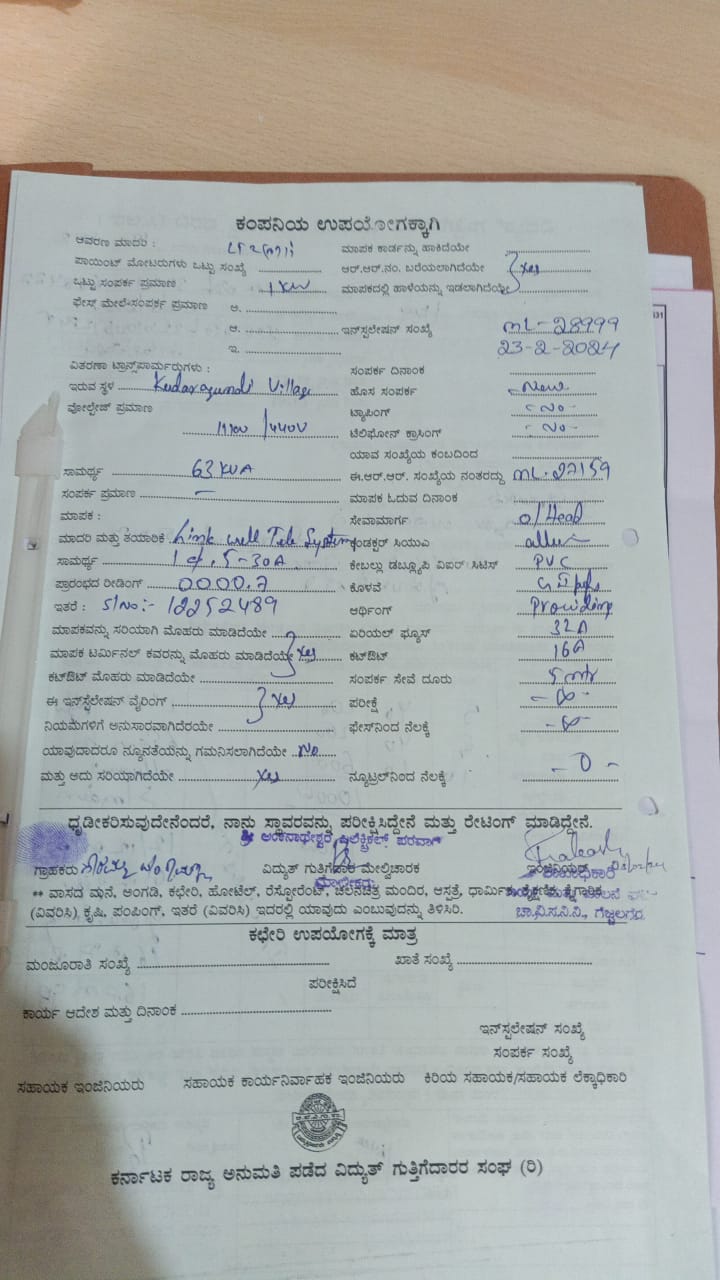 ಕಂಪನಿಯ ಉಪಯೋಗಕ್ಕಾಗಿ
ಆವರಣ ಮಾದರಿ : ಮಾಪಕ ಕಾರ್ಡನ್ನು ಹಾಕಿದೆಯೇ
ಪಾಯಿಂಟ್ ಮೋಟರುಗಳು ಒಟ್ಟು ಸಂಖ್ಯೆ ಆರ್.ಆರ್.ನಂ. ಬರೆಯಲಾಗಿದೆಯೇ Yes
ಒಟ್ಟು ಸಂಪರ್ಕ ಪ್ರಮಾಣ 1 KW ಮಾಪಕದಲ್ಲಿ ಹಾಳೆಯನ್ನು ಇಡಲಾಗಿದೆಯೇ
ಫೇಸ್ ಮೇಲೆ ಸಂಪರ್ಕ ಪ್ರಮಾಣ ಅ.
: ಆ. ಇನ್‌ಸ್ಟಲೇಷನ್ ಸಂಖ್ಯೆ ML-28999
ಇ. 23-2-2024
ವಿತರಣಾ ಟ್ರಾನ್ಸ್‌ಪಾರ್ಮರುಗಳು : ಸಂಪರ್ಕ ದಿನಾಂಕ
ಇರುವ ಸ್ಥಳ Kudaragundi Village ಹೊಸ ಸಂಪರ್ಕ - New -
ವೋಲ್ಟೇಜ್ ಪ್ರಮಾಣ ಟ್ಯಾಪಿಂಗ್ - No -
11KV / 440V ಟೆಲಿಫೋನ್ ಕ್ರಾಸಿಂಗ್ - No -
ಯಾವ ಸಂಖ್ಯೆಯ ಕಂಬದಿಂದ
ಸಾಮರ್ಥ್ಯ 63 KVA ಈ.ಆರ್.ಆರ್. ಸಂಖ್ಯೆಯ ನಂತರದ್ದು ML-27159
ಸಂಪರ್ಕ ಪ್ರಮಾಣ - ಮಾಪಕ ಓದುವ ದಿನಾಂಕ
ಮಾಪಕ : ಸೇವಾಮಾರ್ಗ O/Head
ಮಾದರಿ ಮತ್ತು ತಯಾರಿಕೆ Link well Tele System ಕಂಡಕ್ಟರ್ ಸಿಯುಎ
ಸಾಮರ್ಥ್ಯ 1 ф, 5-30A ಕೇಬಲ್ಲು ಡಬ್ಲ್ಯೂಪಿ ಏಐರ್ ಸಿಟಿಸ್ PVC
ಪ್ರಾರಂಭದ ರೀಡಿಂಗ್ 0000.7 ಕೊಳವೆ GI pipe
ಇತರೆ : Sl No:- 12252489 ಅರ್ಥಿಂಗ್ Providing
ಮಾಪಕವನ್ನು ಸರಿಯಾಗಿ ಮೊಹರು ಮಾಡಿದೆಯೇ ಏರಿಯಲ್ ಫ್ಯೂಸ್ 32A
ಮಾಪಕ ಟರ್ಮಿನಲ್ ಕವರನ್ನು ಮೊಹರು ಮಾಡಿದೆಯೇ Yes ಕಟ್‌ಔಟ್ 16A
ಕಟ್‌ಔಟ್ ಮೊಹರು ಮಾಡಿದೆಯೇ ಸಂಪರ್ಕ ಸೇವೆ ದೂರು 5 mtr
ಈ ಇನ್‌ಸ್ಟಲೇಷನ್ ವೈರಿಂಗ್ Yes ಪರೀಕ್ಷೆ - ∞ -
ನಿಯಮಗಳಿಗೆ ಅನುಸಾರವಾಗಿದೆರಯೇ ಫೇಸ್‌ನಿಂದ ನೆಲಕ್ಕೆ - ∞ -
ಯಾವುದಾದರೂ ನ್ಯೂನತೆಯನ್ನು ಗಮನಿಸಲಾಗಿದೆಯೇ No
ಮತ್ತು ಅದು ಸರಿಯಾಗಿದೆಯೇ Yes ನ್ಯೂಟ್ರಲ್‌ನಿಂದ ನೆಲಕ್ಕೆ - 0 -
ಧೃಡೀಕರಿಸುವುದೇನೆಂದರೆ, ನಾನು ಸ್ಥಾವರವನ್ನು ಪರೀಕ್ಷಿಸಿದ್ದೇನೆ ಮತ್ತು ರೇಟಿಂಗ್ ಮಾಡಿದ್ದೇನೆ.
ಗ್ರಾಹಕರು ವಿದ್ಯುತ್ ಗುತ್ತಿಗೆದಾರ ಮೇಲ್ವಿಚಾರಕ ಇಂಜಿನಿಯರ್
** ವಾಸದ ಮನೆ, ಅಂಗಡಿ, ಕಛೇರಿ, ಹೋಟೆಲ್, ರೆಸ್ಟೋರೆಂಟ್, ಚಲನಚಿತ್ರ ಮಂದಿರ, ಆಸ್ಪತ್ರೆ, ಧಾರ್ಮಿಕ, ಶೈಕ್ಷಣಿಕ, ಕೈಗಾರಿಕ
(ವಿವರಿಸಿ) ಕೃಷಿ, ಪಂಪಿಂಗ್, ಇತರೆ (ವಿವರಿಸಿ) ಇದರಲ್ಲಿ ಯಾವುದು ಎಂಬುವುದನ್ನು ತಿಳಿಸಿರಿ. ಚಾ.ವಿ.ಸ.ನಿ.ನಿ.,
ಕಛೇರಿ ಉಪಯೋಗಕ್ಕೆ ಮಾತ್ರ
ಮಂಜೂರಾತಿ ಸಂಖ್ಯೆ ಖಾತೆ ಸಂಖ್ಯೆ
ಪರೀಕ್ಷಿಸಿದೆ
ಕಾರ್ಯ ಆದೇಶ ಮತ್ತು ದಿನಾಂಕ
ಇನ್‌ಸ್ಟಲೇಷನ್ ಸಂಖ್ಯೆ
ಸಂಪರ್ಕ ಸಂಖ್ಯೆ
ಸಹಾಯಕ ಇಂಜಿನಿಯರು ಸಹಾಯಕ ಕಾರ್ಯನಿರ್ವಾಹಕ ಇಂಜಿನಿಯರು ಕಿರಿಯ ಸಹಾಯಕ/ಸಹಾಯಕ ಲೆಕ್ಕಾಧಿಕಾರಿ
ಕರ್ನಾಟಕ ರಾಜ್ಯ ಅನುಮತಿ ಪಡೆದ ವಿದ್ಯುತ್ ಗುತ್ತಿಗೆದಾರರ ಸಂಘ (ರಿ)